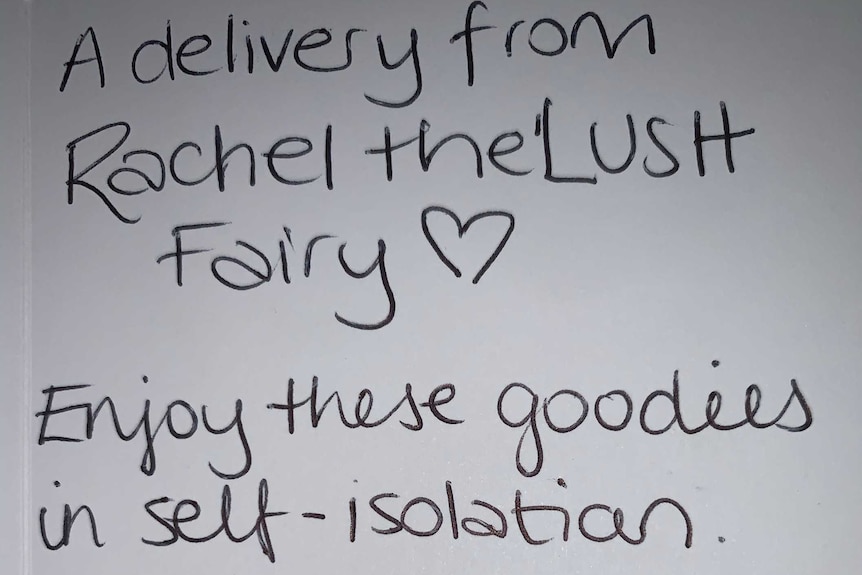 A delivery from
Rachel the'LUSH
Fairy ♡
Enjoy these goodies
in self-isolation.